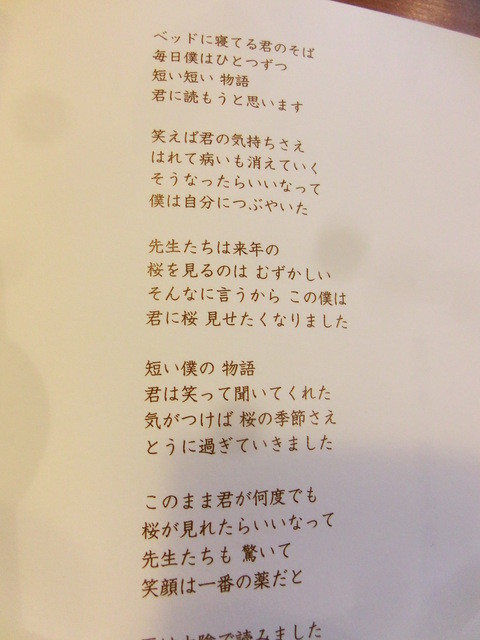 ベッドに寝てる君のそば
毎日僕はひとつずつ
短い短い 物語
君に読もうと思います
笑えば君の気持ちさえ
はれて病いも消えていく
そうなったらいいなって
僕は自分につぶやいた
先生たちは来年の
桜を見るのは むずかしい
そんなに言うから この僕は
君に桜 見せたくなりました
短い僕の 物語
君は笑って聞いてくれた
気がつけば 桜の季節さえ
とうに過ぎていきました
このまま君が何度でも
桜が見れたらいいなって
先生たちも 驚いて
笑顔は一番の薬だと
で読みました